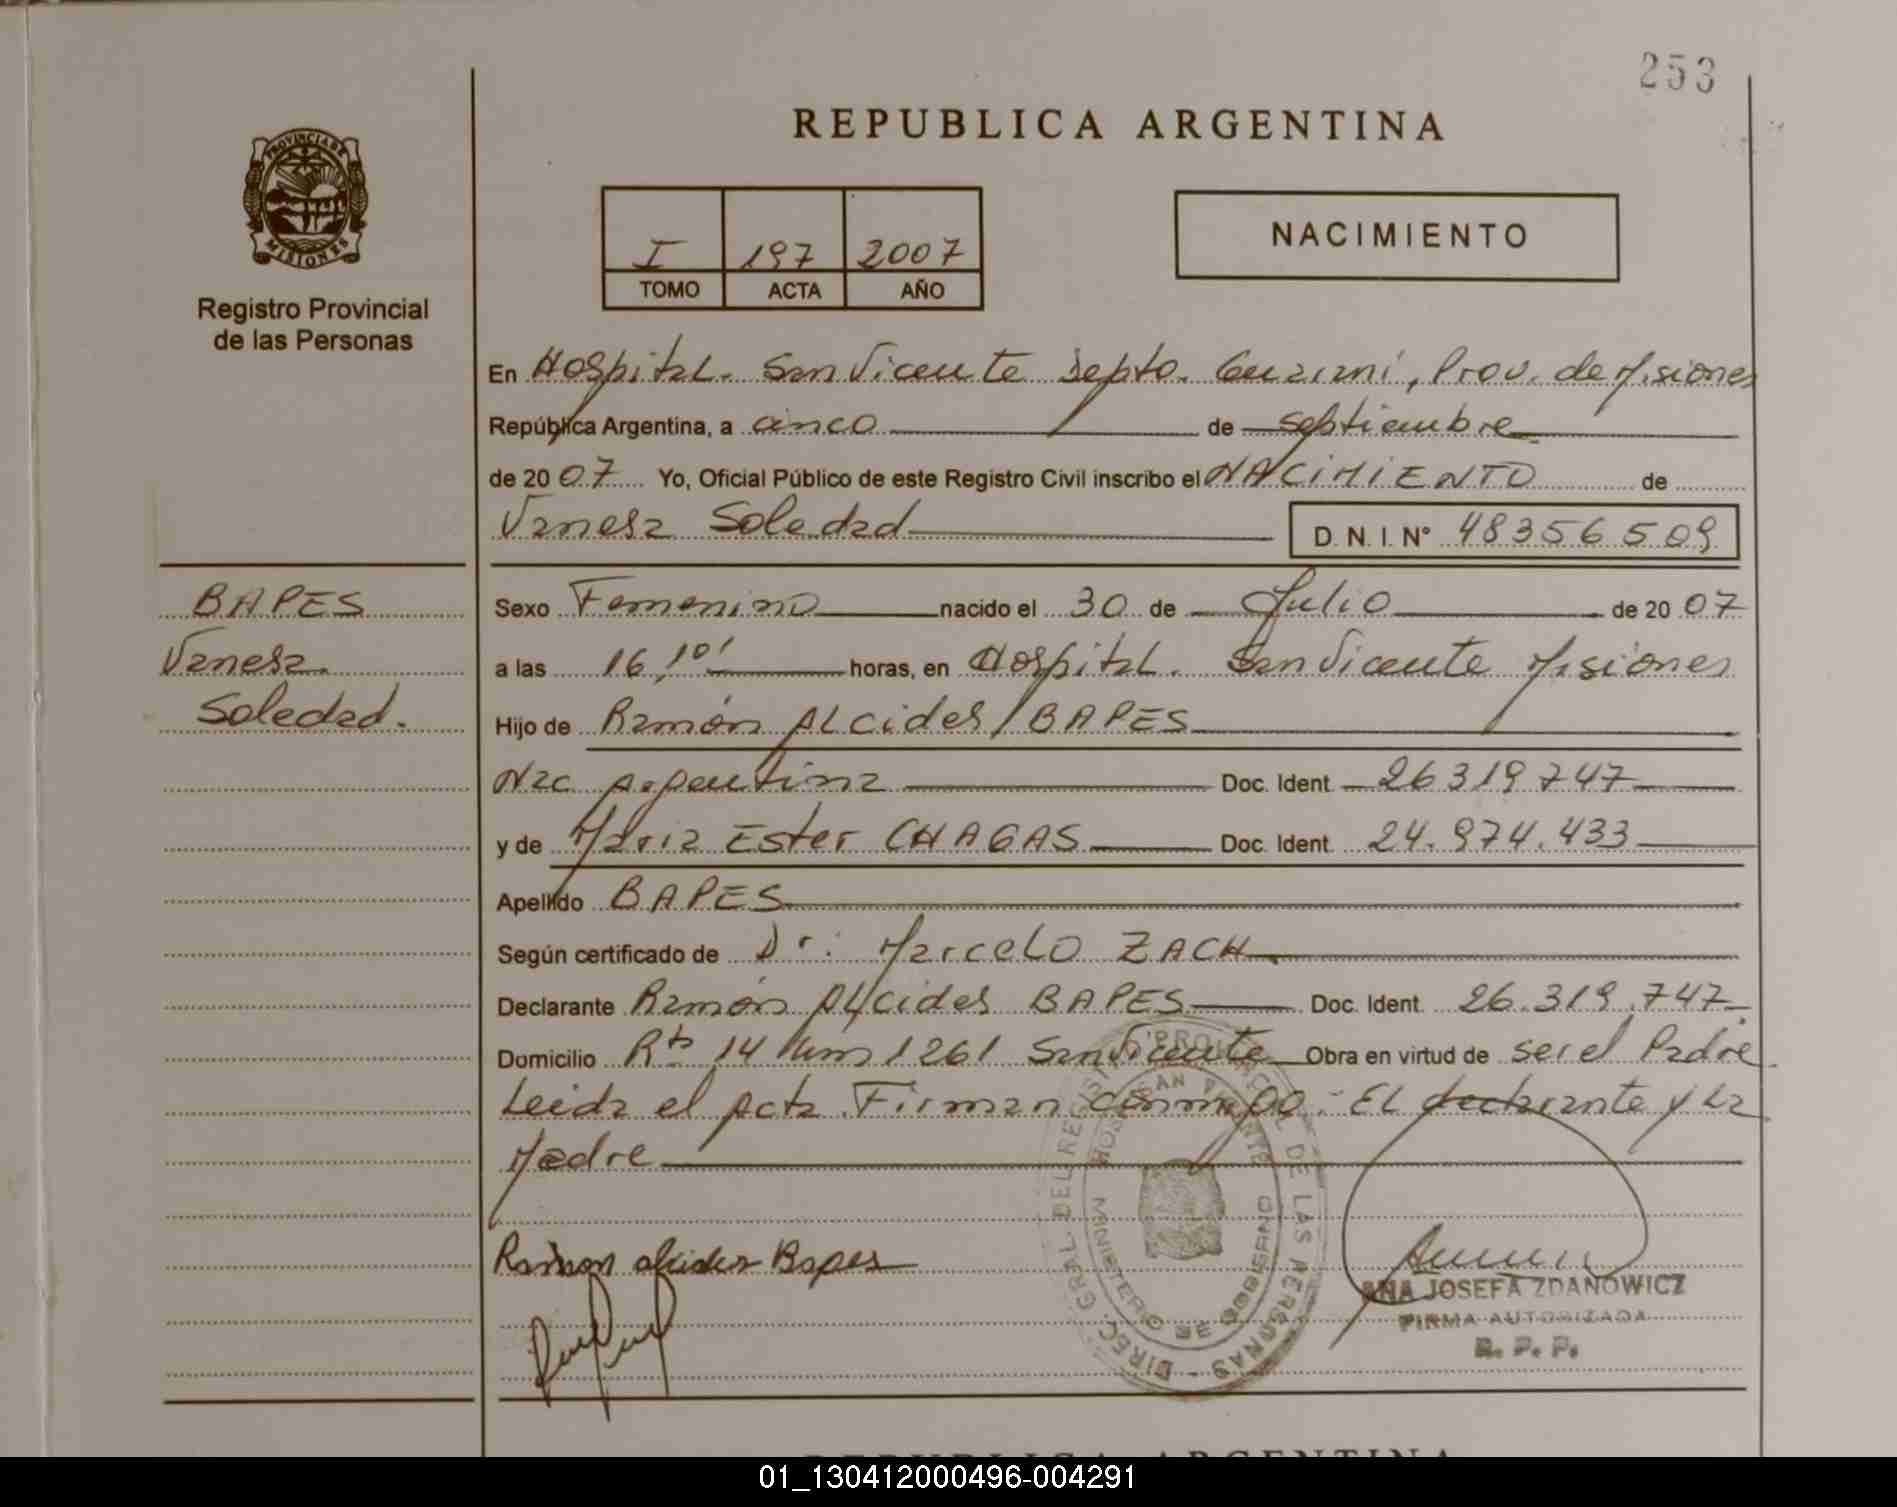 253
REPUBLICA ARGENTINA
PROVINCIA DE
MISIONES
Registro Provincial
de las Personas
I 197 2007
TOMO ACTA AÑO
NACIMIENTO
En Hospital. San Vicente Depto. Guaraní, Prov. de Misiones
República Argentina, a cinco de septiembre
de 2007 Yo, Oficial Público de este Registro Civil inscribo el NACIMIENTO de
Vanesa Soledad D.N.I. N° 48356509
BAPES
Vanesa
Soledad.
Sexo Femenino nacido el 30 de Julio de 2007
a las 16,10' horas, en Hospital. San Vicente Misiones
Hijo de Ramón Alcides BAPES
Nac Argentina Doc. Ident 26319747
y de Maria Ester CHAGAS Doc. Ident 24.974.433
Apellido BAPES
Según certificado de Dr: Marcelo ZACH
Declarante Ramón Alcides BAPES Doc. Ident. 26.319.747
Domicilio Rta 14 Km 1261 San Vicente Obra en virtud de ser el Padre
Leida el Acta Firman conmigo. El declarante y La
Madre
Ramon Alcides Bapes
DIREC. GRAL. DEL REGISTRO PROVINCIAL DE LAS PERSONAS
HOSP. SAN VICENTE
MINISTERIO DE GOBIERNO
ANA JOSEFA ZDANOWICZ
FIRMA AUTORIZADA
R. P. P.
REPUBLICA ARGENTINA
01_130412000496-004291